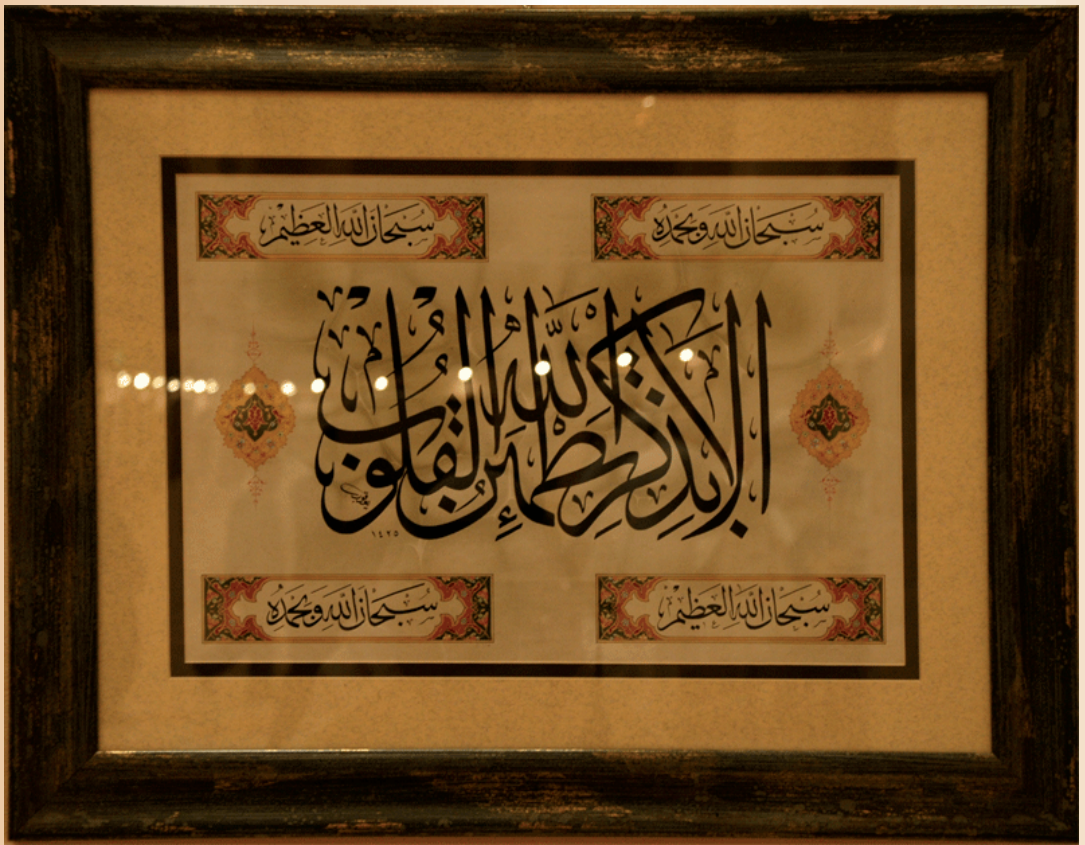 سُبْحَانَ اللهِ وَبِحَمْدِهِ
سُبْحَانَ اللهِ الْعَظِيمْ
أَلَا بِذِكْرِ اللَّهِ تَطْمَئِنُّ الْقُلُوبُ
١٤٢٥
سُبْحَانَ اللهِ الْعَظِيمْ
سُبْحَانَ اللهِ وَبِحَمْدِهِ